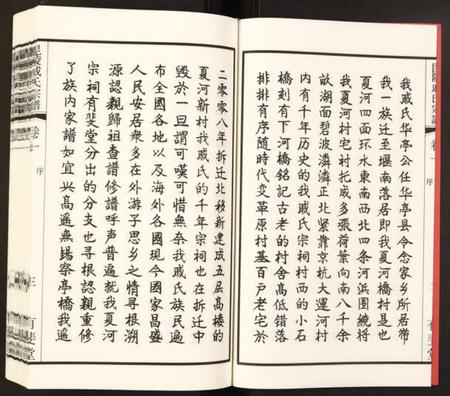 我戚氏华亭公任华亭县令念家乡所居带
我一族迁至堰南落居即我夏河桥村是也
夏河四面环水東南西北四条河浜團繞将
我夏河村宅衬托成多張荷葉向南八千余
畝湖面碧波潾潾正北緊靠京杭大運河村
内有千年历史的我戚氏宗祠村西的小石
橋刻有下河橋銘記古老的村舍高低错落
排排有序随時代变革原村基百户老宅於
序
二零零八年拆迁北移新建成五层高楼的
夏河新村我戚氏的千年宗祠也在拆迁中
毁於一旦谓可嘆可惜無奈我戚氏族民遍
布全國各地以及海外各國現今國家昌盛
人民安居衆多在外游子思乡之情寻根溯
源認親歸祖查譜修譜呼声普遍就我夏河
宗祠有斐堂分出的分支也寻根認親重修
了族内家譜如宜兴高遥無锡察亭橋我遥
戚氏宗譜
卷一
序
有斐堂